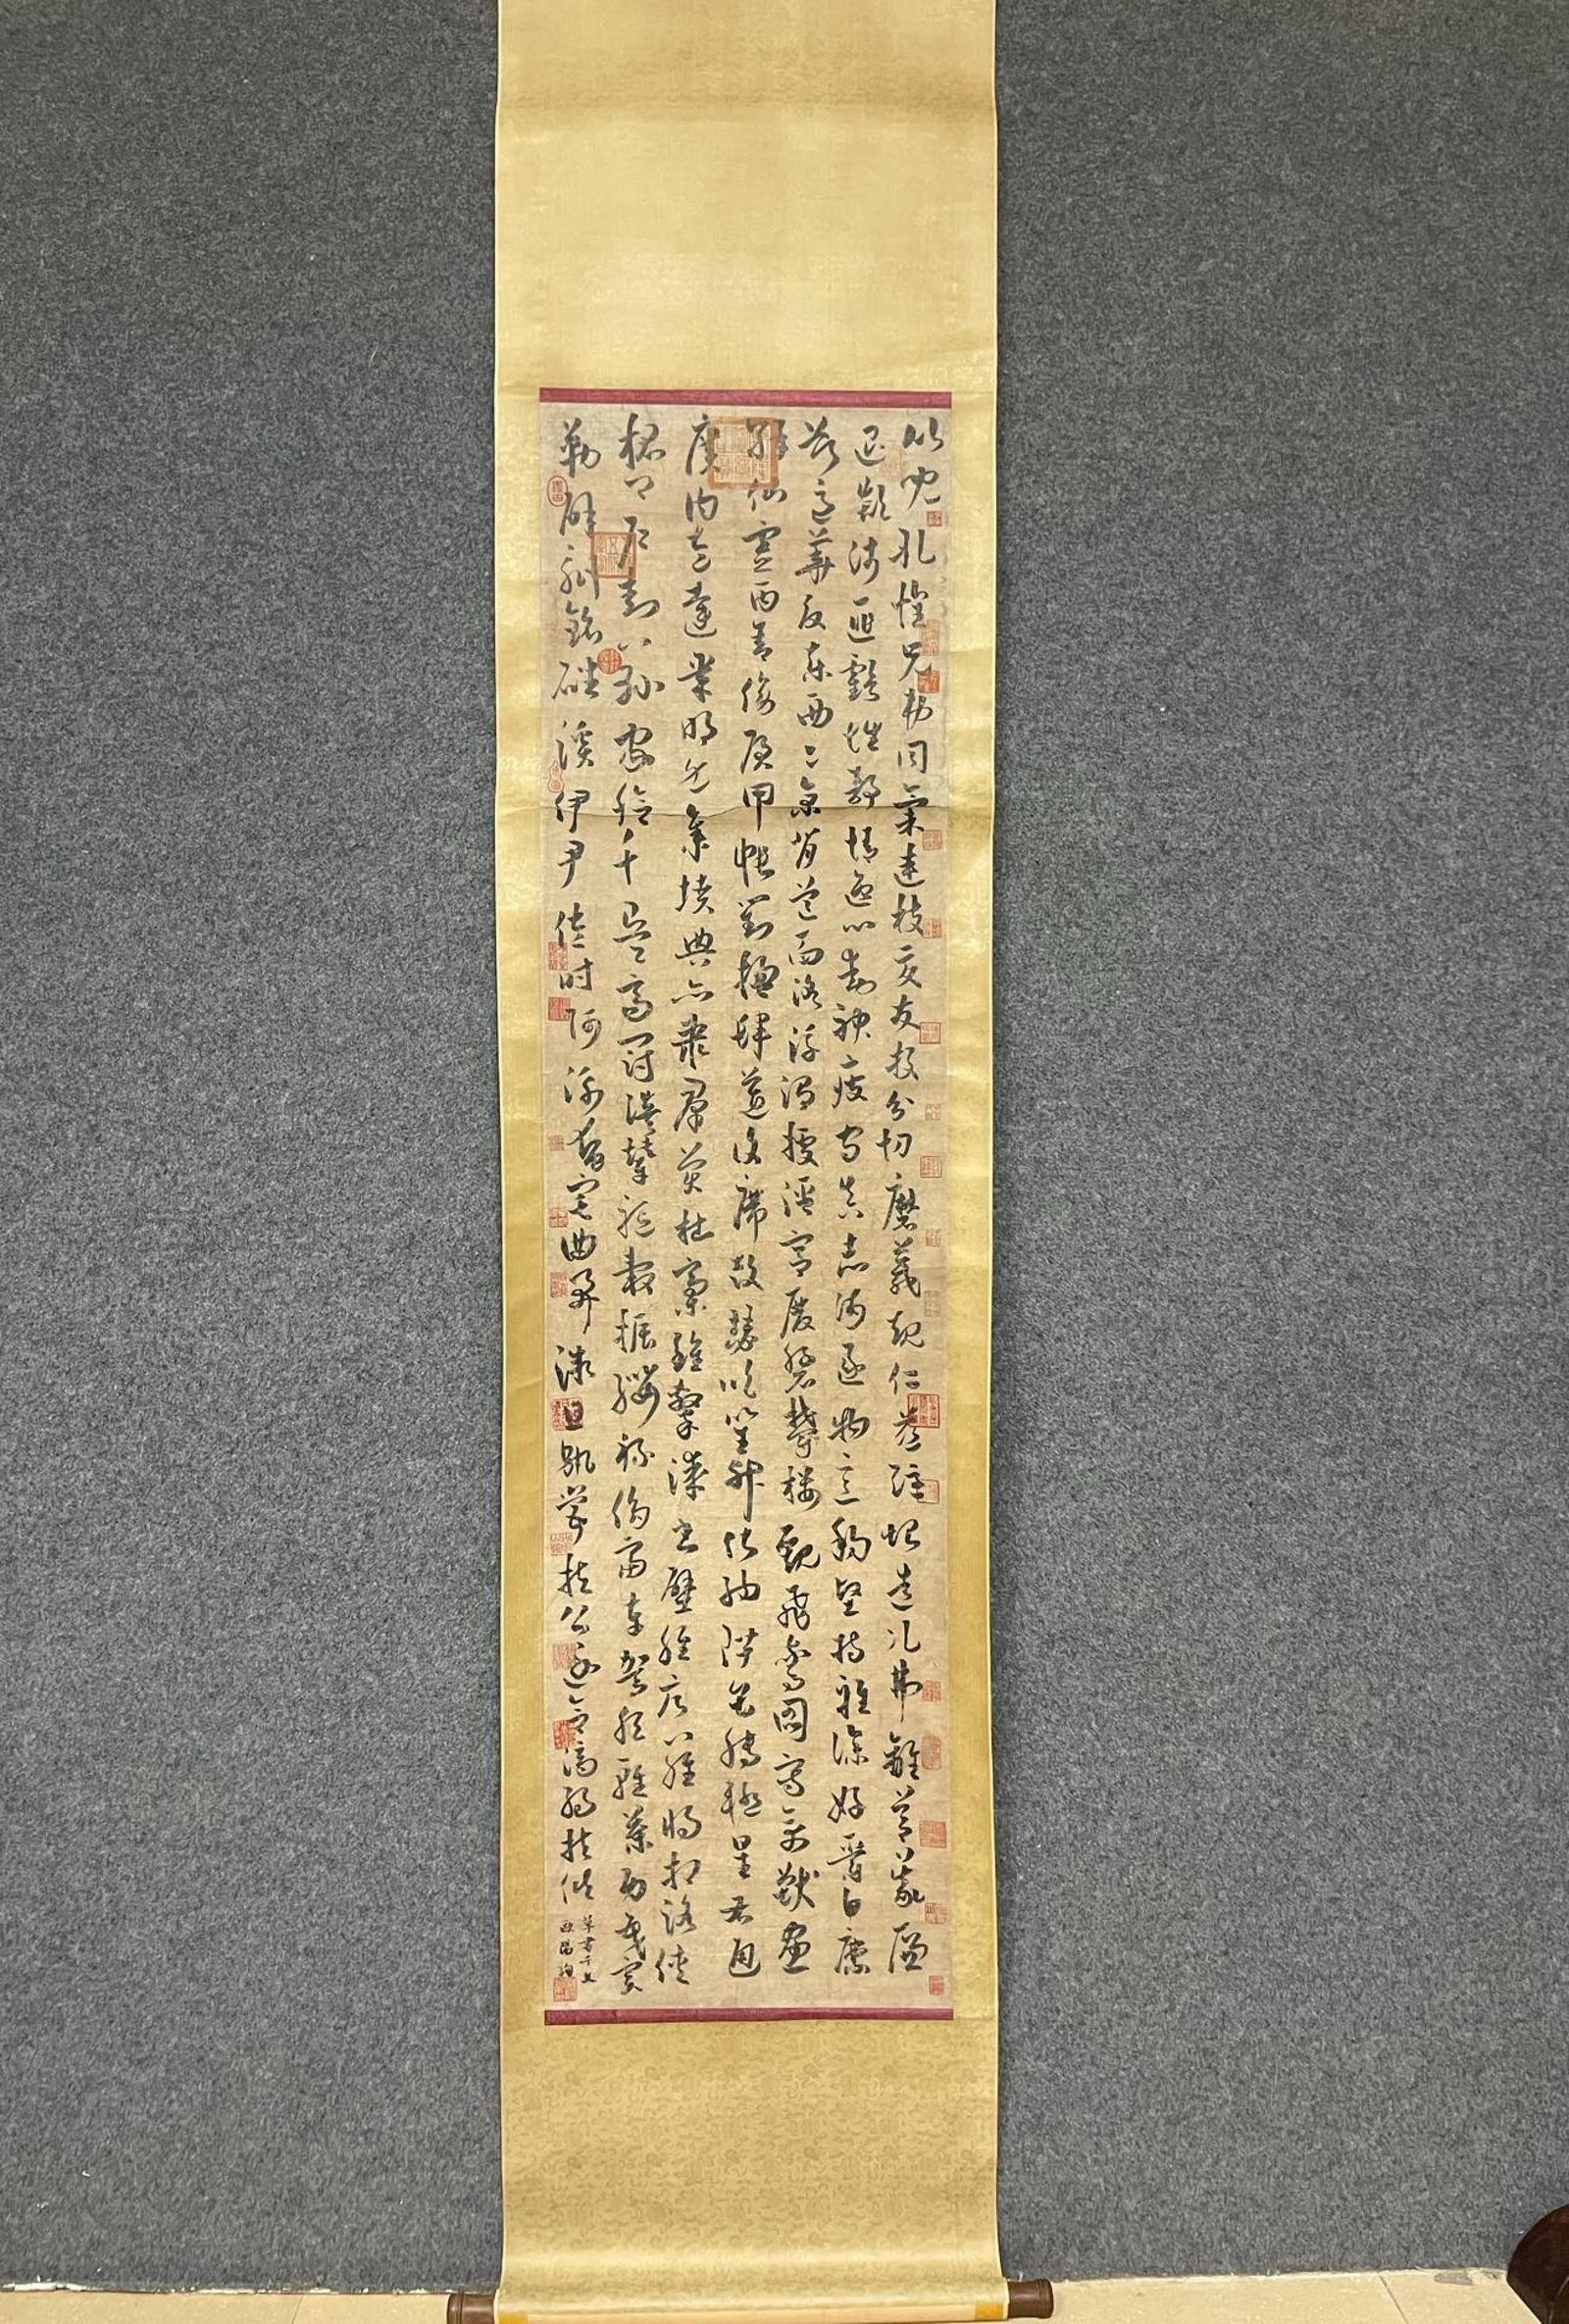 比兒孔懷兄弟同氣連枝交友投分切磨箴規仁慈隱惻造次弗離節義廉
退顛沛匪虧性靜情逸心動神疲守真志滿逐物意移堅持雅操好爵自縻
都邑華夏東西二京背芒面洛浮渭據涇宮殿盤鬱樓觀飛驚圖寫禽獸畫
彩仙靈丙舍傍啟甲帳對楹肆筵設席鼓瑟吹笙升階納陛弁轉疑星右通
廣內左達承明既集墳典亦聚群英杜稿鍾隸漆書壁經府羅將相路俠
槐卿戶封八縣家給千兵高冠陪輦驅轂振纓世祿侈富車駕肥輕策功茂實
勒碑刻銘磻溪伊尹佐時阿衡奄宅曲阜微旦孰營桓公匡合濟弱扶傾
草書千文
歐陽詢